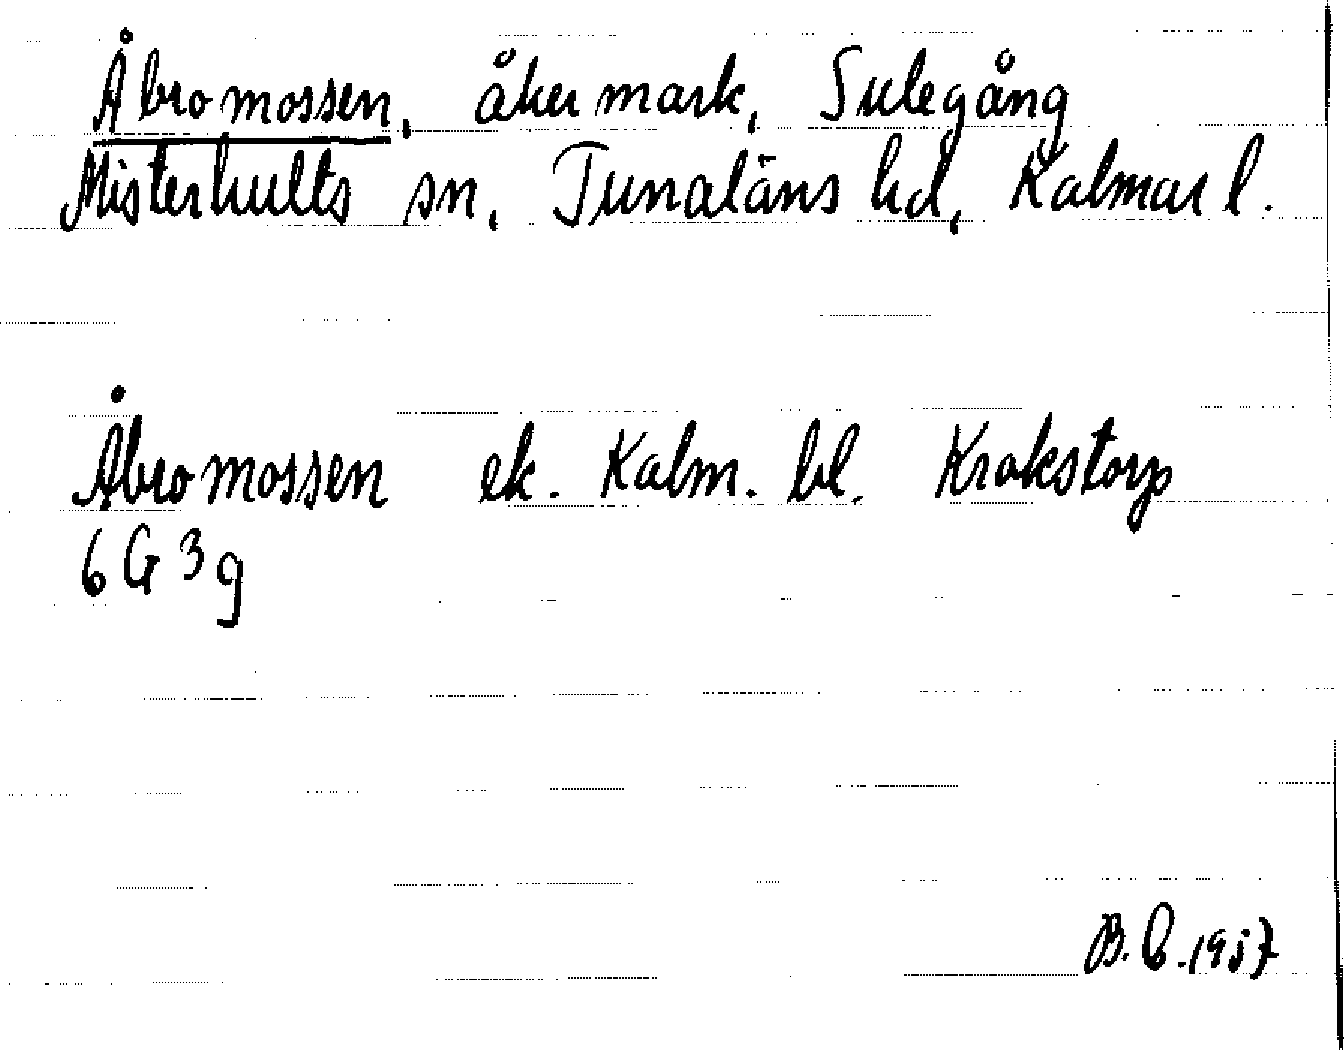 Åbromossen, åkermark, Sulegång
Misterhults sn, Tunaläns hd, Kalmar l.
Åbromossen ek. Kalm. bl. Krokstorp
6G 3g
B.C. 1957